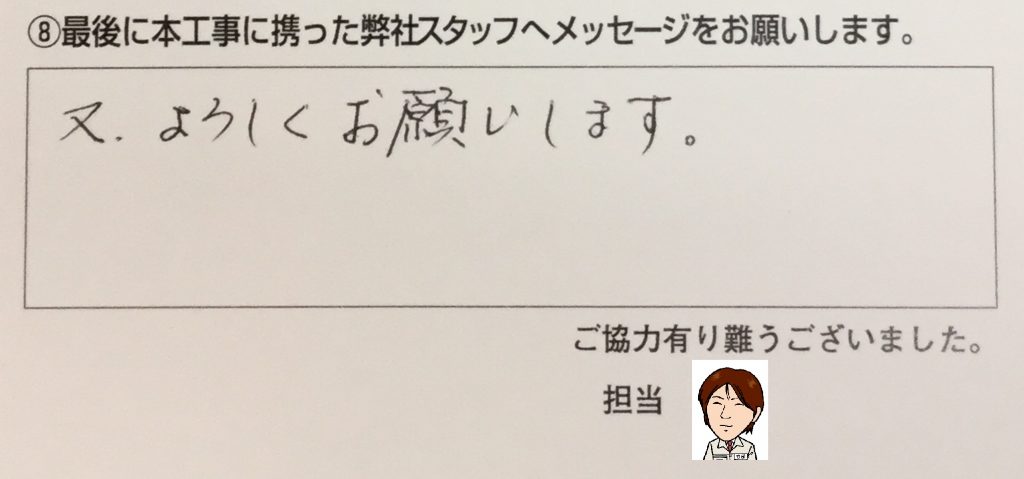 ⑧最後に本工事に携った弊社スタッフへメッセージをお願いします。
又、よろしくお願いします。
ご協力有り難うございました。
担当